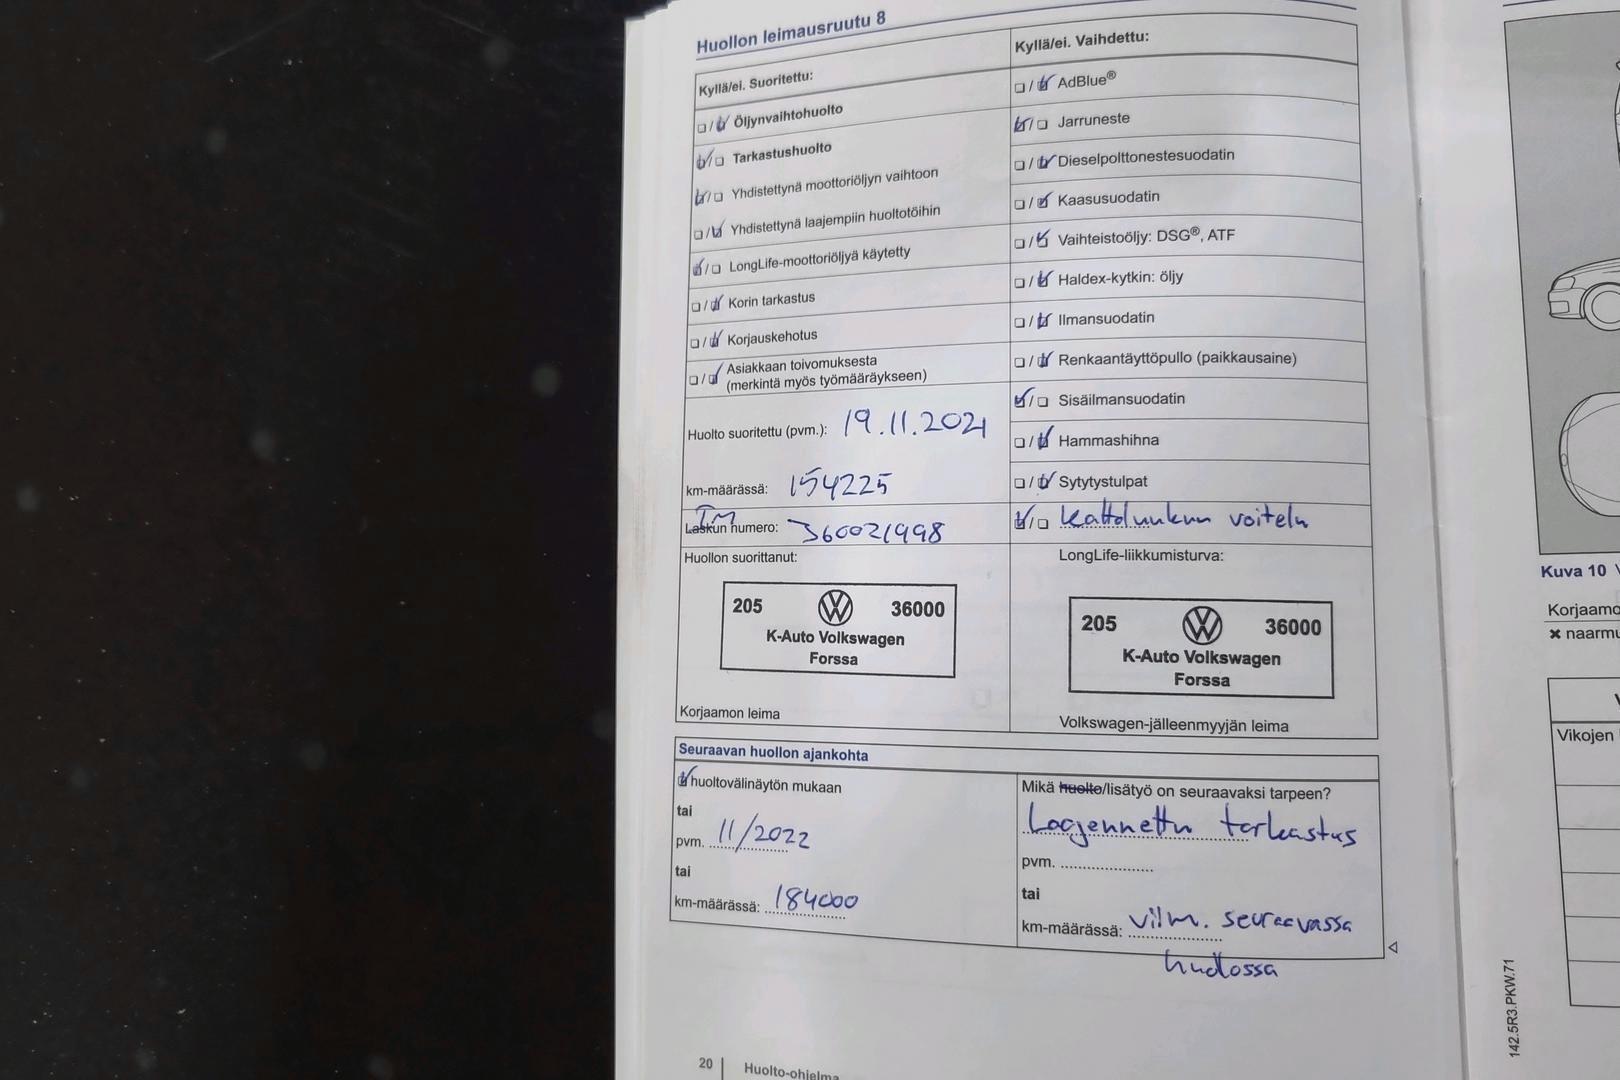 Huollon leimausruutu 8
Kyllä/ei. Suoritettu:
Öljynvaihtohuolto
Tarkastushuolto
Yhdistettynä moottoriöljyn vaihtoon
Yhdistettynä laajempiin huoltotöihin
LongLife-moottoriöljyä käytetty
Korin tarkastus
Korjauskehotus
Asiakkaan toivomuksesta
(merkintä myös työmääräykseen)
Huolto suoritettu (pvm.): 19.11.2021
km-määrässä: 154225
TM
Laskun numero: 360021998
Huollon suorittanut:
205 36000
K-Auto Volkswagen
Forssa
Korjaamon leima
Kyllä/ei. Vaihdettu:
AdBlue®
Jarruneste
Dieselpolttonestesuodatin
Kaasusuodatin
Vaihteistoöljy: DSG®, ATF
Haldex-kytkin: öljy
Ilmansuodatin
Renkaantäyttöpullo (paikkausaine)
Sisäilmansuodatin
Hammashihna
Sytytystulpat
Kattoluukun voitelu
LongLife-liikkumisturva:
205 36000
K-Auto Volkswagen
Forssa
Volkswagen-jälleenmyyjän leima
Seuraavan huollon ajankohta
huoltovälinäytön mukaan
tai
pvm. 11/2022
tai
km-määrässä: 184000
Mikä huolto/lisätyö on seuraavaksi tarpeen?
Laajennettu tarkastus
pvm.
tai
km-määrässä: vilm. seuraavassa
huollossa
20 Huolto-ohjelma
142.5R3.PKW.71
Kuva 10
Korjaamo
✖ naarmu
Vikojen